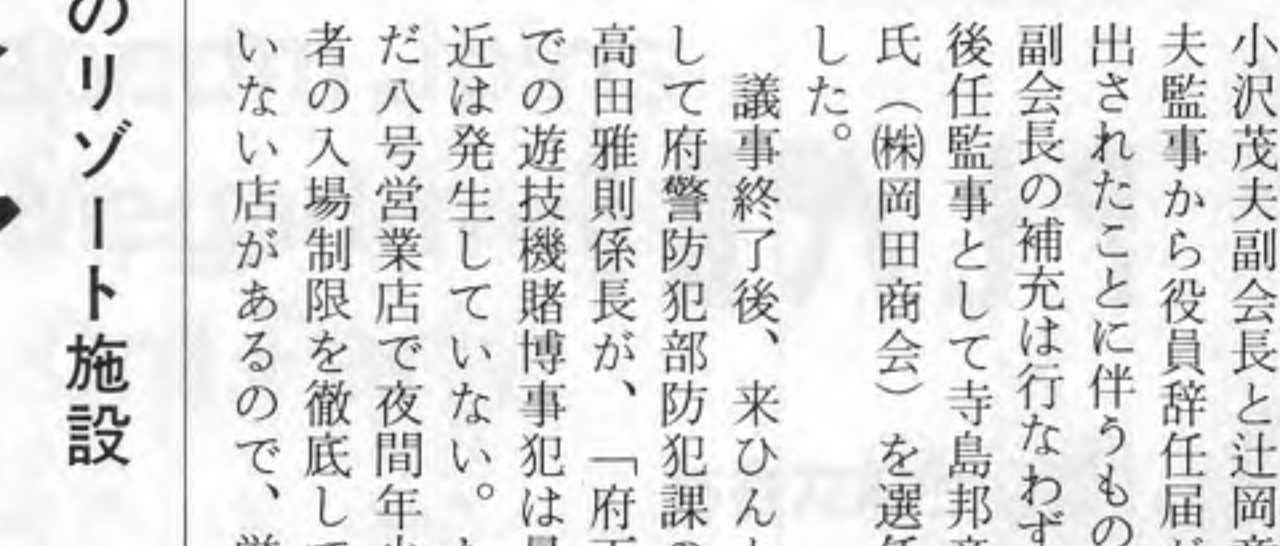 小沢茂夫副会長と辻岡
夫監事から役員辞任届
出されたことに伴うもの
副会長の補充は行なわず
後任監事として寺島邦
氏（㈱岡田商会）を選
した。
議事終了後、来ひん
して府警防犯部防犯課の
高田雅則係長が、「府下
での遊技機賭博事犯は
近は発生していない。
だ八号営業店で夜間年
者の入場制限を徹底して
いない店があるので、営
のリゾート施設